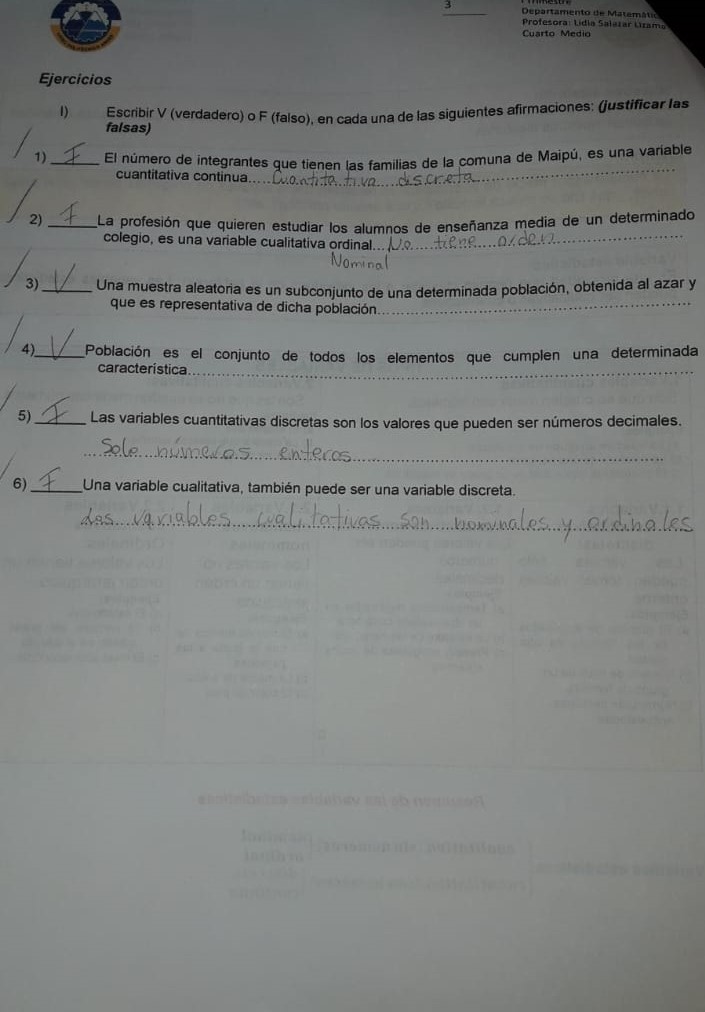 3
I Trimestre
Departamento de Matemátic
Profesora: Lidia Salazar Lizama
Cuarto Medio
Ejercicios
I) Escribir V (verdadero) o F (falso), en cada una de las siguientes afirmaciones: (justificar las
falsas)
1) F El número de integrantes que tienen las familias de la comuna de Maipú, es una variable
cuantitativa continua..... Cuantitativa discreta
2) F La profesión que quieren estudiar los alumnos de enseñanza media de un determinado
colegio, es una variable cualitativa ordinal... No tiene orden
Nominal
3) V Una muestra aleatoria es un subconjunto de una determinada población, obtenida al azar y
que es representativa de dicha población
4) V Población es el conjunto de todos los elementos que cumplen una determinada
característica
5) F Las variables cuantitativas discretas son los valores que pueden ser números decimales.
Solo números enteros
6) F Una variable cualitativa, también puede ser una variable discreta.
Las variables cualitativas son nominales y ordinales